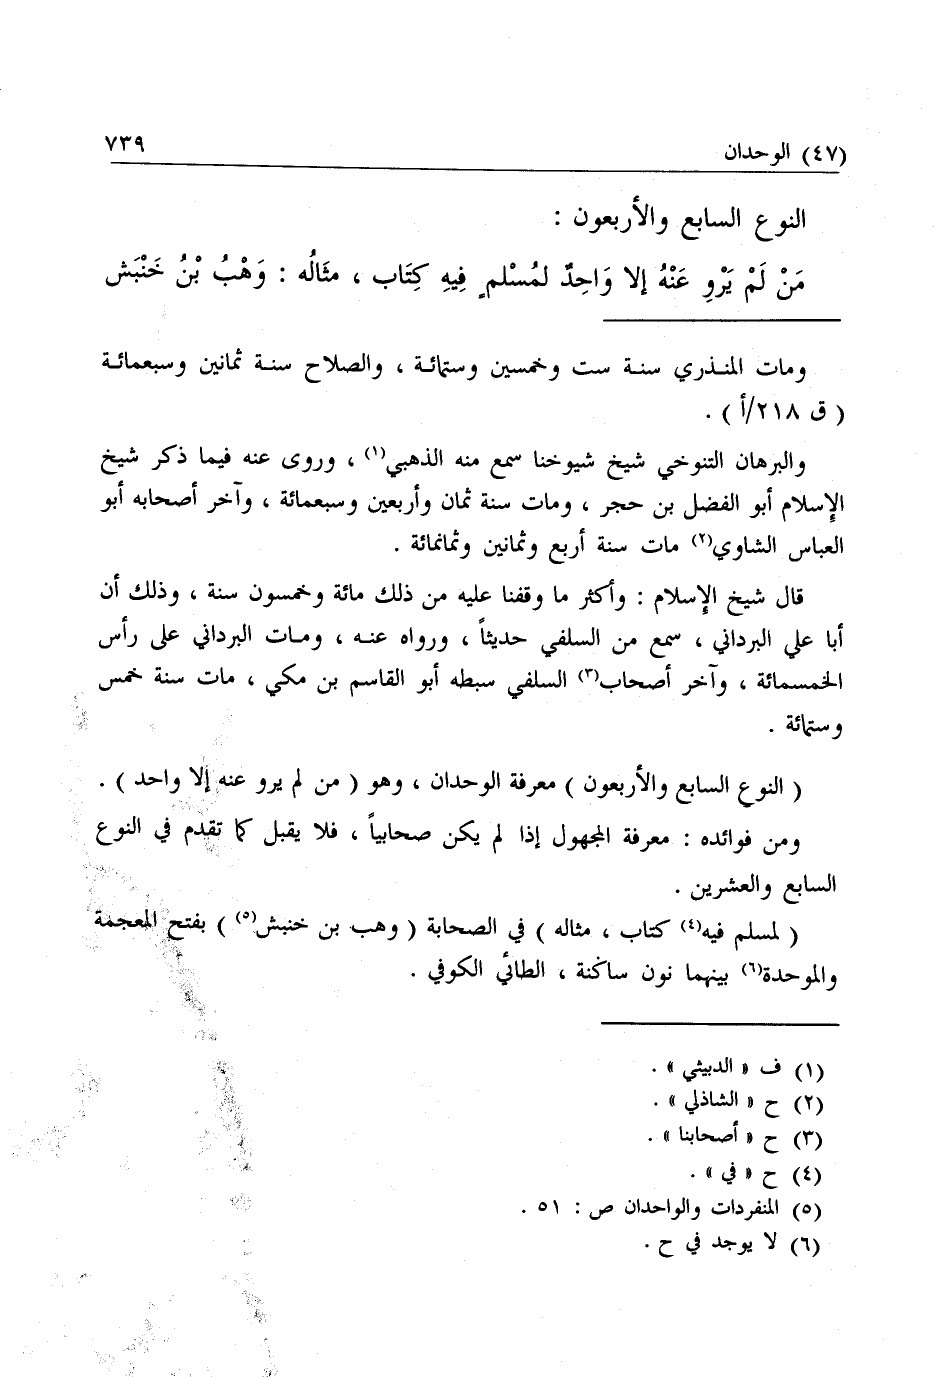 (٤٧) الوحدان ٧٣٩
النوع السابع والأربعون :
مَنْ لَمْ يَرْوِ عَنْهُ إلا وَاحِدٌ لمُسْلمٍ فِيهِ كِتَاب ، مثَالُه : وَهْبُ بْنُ خَنْبَش
ومات المنذري سنة ست وخمسين وستمائة ، والصلاح سنة ثمانين وسبعمائة
( ق ٢١٨/أ ) .
والبرهان التنوخي شيخ شيوخنا سمع منه الذهبي(١) ، وروى عنه فيما ذكر شيخ
الإسلام أبو الفضل بن حجر ، ومات سنة ثمان وأربعين وسبعمائة ، وآخر أصحابه أبو
العباس الشاوي(٢) مات سنة أربع وثمانين وثمانمائة .
قال شيخ الإسلام : وأكثر ما وقفنا عليه من ذلك مائة وخمسون سنة ، وذلك أن
أبا علي البرداني ، سمع من السلفي حديثاً ، ورواه عنه ، ومات البرداني على رأس
الخمسمائة ، وآخر أصحاب(٣) السلفي سبطه أبو القاسم بن مكي ، مات سنة خمس
وستمائة .
( النوع السابع والأربعون ) معرفة الوحدان ، وهو ( من لم يرو عنه إلا واحد ) .
ومن فوائده : معرفة المجهول إذا لم يكن صحابياً ، فلا يقبل كما تقدم في النوع
السابع والعشرين .
( لمسلم فيه(٤) كتاب ، مثاله ) في الصحابة ( وهب بن خنبش(٥) ) بفتح المعجمة
والموحدة(٦) بينهما نون ساكنة ، الطائي الكوفي .
(١) ف « الدبيثي » .
(٢) ح « الشاذلي » .
(٣) ح « أصحابنا » .
(٤) ح « في » .
(٥) المنفردات والواحدان ص : ٥١ .
(٦) لا يوجد في ح .